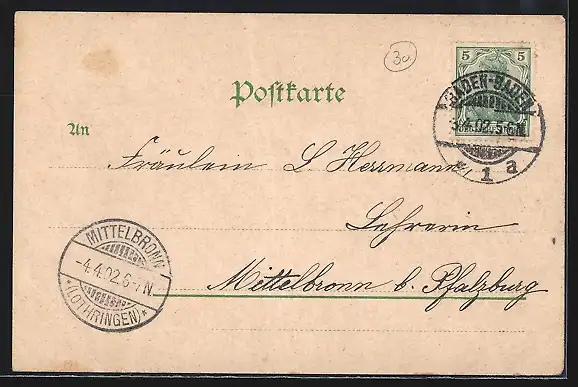 30
5 5
BADEN-BADEN
3.4.02.
* 1 a
Postkarte
An
Fräulein L. Herrmann,
Lehrerin
Mittelbronn b. Pfalzburg
MITTELBRONN
-4.4.02.6-7N.
*(LOTHRINGEN)*